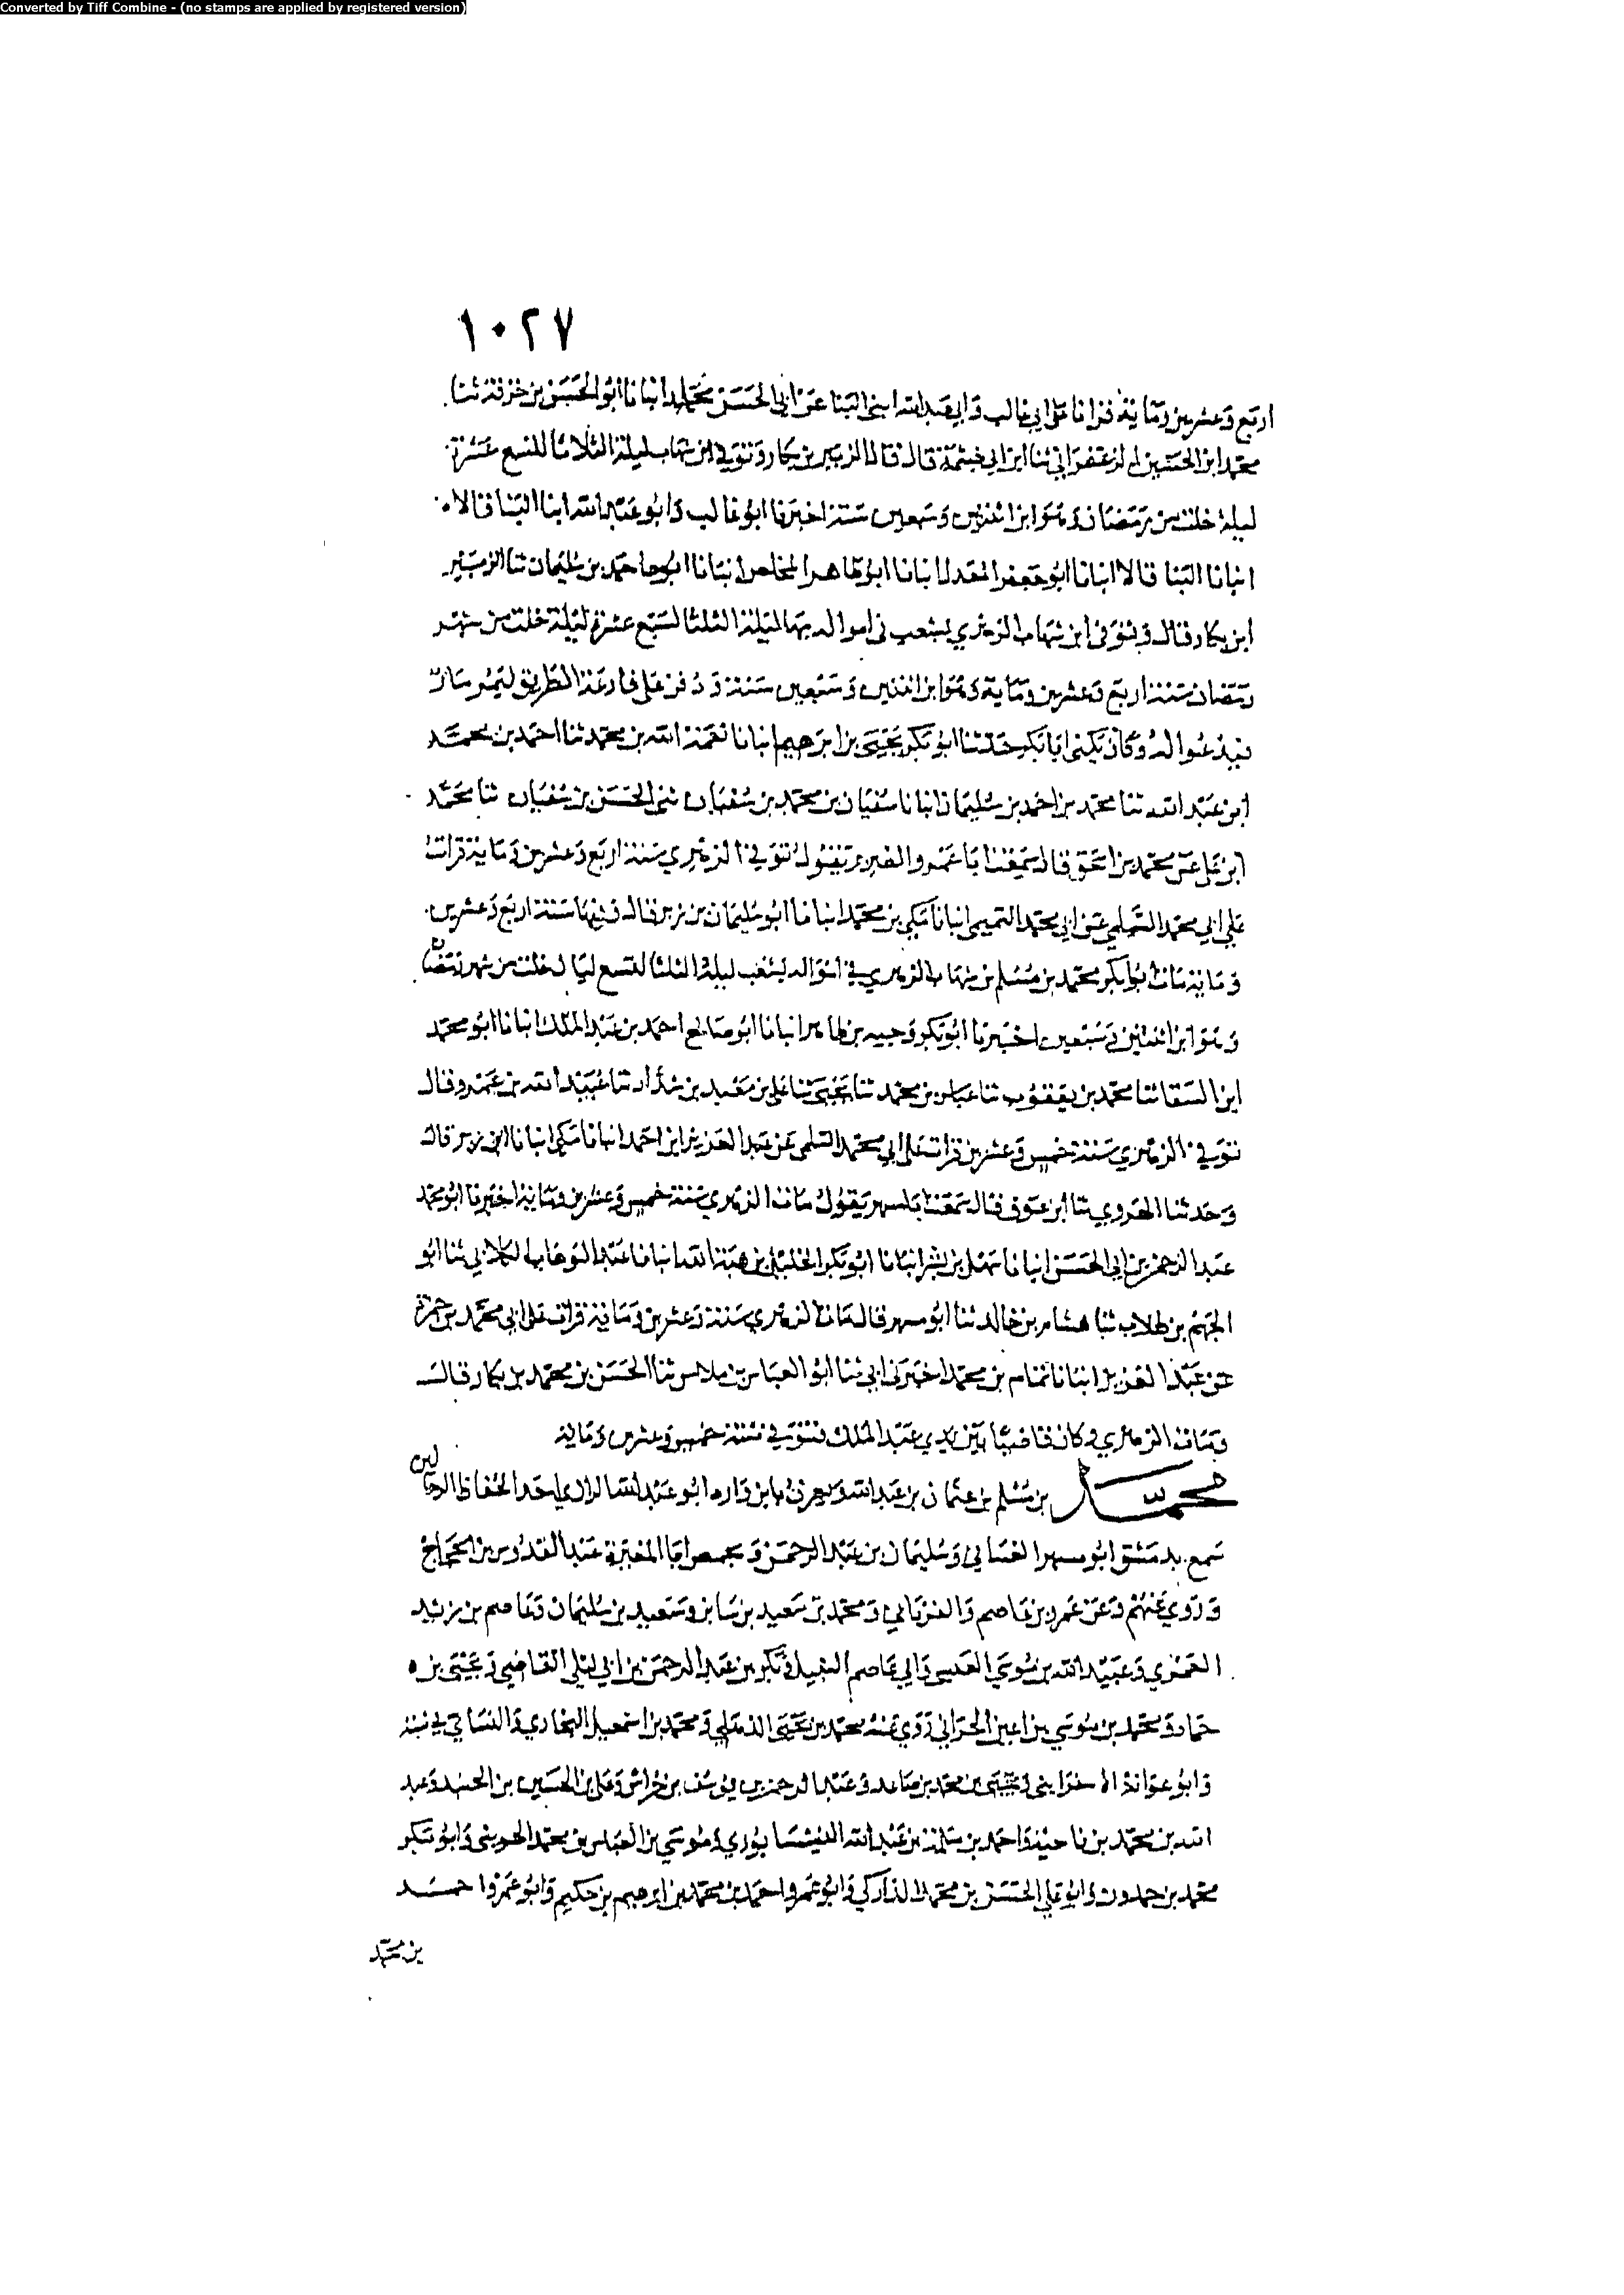 Converted by Tiff Combine - (no stamps are applied by registered version)
١٠٢٧
اربع وعشرين ومائة قرانا على ابي غالب وابي عبد الله ابني البنا عن ابي الحسن محمد بن مخلد انبانا ابو الحسن بن خزفة ثنا
محمد ابن الحسين الزعفراني ثنا ابن ابي خيثمة قال قال الزبير بن بكار وتوفي ابن شهاب ليلة الثلاثا لتسع عشرة
ليلة خلت من رمضان وهو ابن اثنتين وسبعين سنة اخبرنا ابو غالب وابو عبد الله ابنا البنا قالا
انبانا البنا قالا انبانا ابو جعفر المعدل انبانا ابو طاهر المخلص انبانا احمد بن سليمان ثنا الزبير
ابن بكار قال وتوفى ابن شهاب الزهري بشعب في امواله بها ليلة الثلثا لسبع عشرة ليلة خلت من شهر
رمضان سنة اربع وعشرين ومائة وهو ابن اثنتين وسبعين سنة ودفن على قارعة الطريق ليمر مار
فيدعوا له وكان يكنى ابا بكر حدثنا ابو بكر يحيى بن ابرهيم انبانا نعمة الله بن محمد ثنا احمد بن محمد
ابن عبد الله ثنا محمد بن احمد بن سليمان انبانا سفيان بن محمد بن سفيان ثني الحسن بن سفيان ثنا محمد
ابن علي عن محمد بن اسحق قال سمعت ابا عمرو الضرير يقول توفي الزهري سنة اربع وعشرين ومائة قرات
على ابي محمد السلمي عن ابي محمد التميمي انبانا مكي بن محمد انبانا ابو سليمان بن زبر قال وفيها سنة اربع وعشرين
ومائة مات ابو بكر محمد بن مسلم بن شهاب الزهري في امواله بشغب ليلة الثلثا لتسع ليال خلت من شهر رمضان
وهو ابن اثنتين وسبعين اخبرنا ابو بكر وجيه بن طاهر انبانا ابو صالح احمد بن عبد الملك انبانا ابو محمد
ابن السقا ثنا محمد بن يعقوب ثنا عباس بن محمد ثنا يحيى ثنا علي بن معبد بن شداد ثنا عبيد الله بن عمرو قال
توفي الزهري سنة خمس وعشرين قرات على ابي محمد السلمي عن عبد العزيز ابن احمد انبانا مكي انبانا ابن زبر قال
وحدثنا الهروي ثنا ابن عوف قال سمعت ابا مسهر يقول مات الزهري سنة خمس وعشرين ومائة اخبرنا ابو محمد
عبد الرحمن بن ابي الحسن انبانا سهل بن بشر انبانا ابو بكر الخليل بن هبة الله انبانا عبد الوهاب الكلابي ثنا ابو
الجهم بن طلاب ثنا هشام بن خالد ثنا ابو مسهر قال مات الزهري سنة وعشرين ومائة قرات على ابي محمد بن حمزة
عن عبد العزيز انبانا تمام بن محمد اخبرني ابي ثنا ابو العباس بن ملاس ثنا الحسن بن محمد بن بكار قال
ومات الزهري وكان قاضيا بين يدي عبد الملك فتوفي سنة خمس وعشرين ومائة
محمد بن مسلم بن عثمان بن عبد الله ويعرف بابن واره ابو عبد الله الرازي احد الحفاظ الرحالين
سمع بدمشق ابو مسهر الغساني وسليمان بن عبد الرحمن وبحمص ابا المغيرة عبد القدوس بن الحجاج
وروي عنهم وعن عمرو بن عاصم والفريابي ومحمد بن سعيد بن سابق وسعيد بن سليمان وعاصم بن يزيد
العمري وعبيد الله بن موسى العبسي وابي عاصم النبيل وبكر بن عبد الرحمن بن ابي ليلى القاضي ويحيى بن
حماد ومحمد بن موسى بن اعين الحراني روي عنه محمد بن يحيى الذهلي ومحمد بن اسمعيل البخاري والنسائي في سننه
وابو عوانة الاسفرايني ويحيى بن محمد بن صاعد وعبد الرحمن بن يوسف بن خراش وعلي بن الحسين بن الجنيد وعبد
الله بن محمد بن ناجية واحمد بن سلمة بن عبد الله النيسابوري وموسى بن العباس بن محمد الجويني وابو بكر
محمد بن حمدون وابو علي الحسن بن محمد الداركي وابو عمرو احمد بن محمد بن ابرهيم بن حكيم وابو عمرو احمد
بن محمد